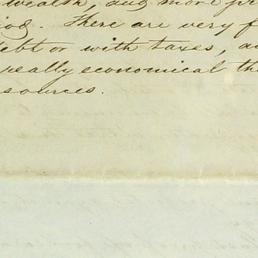 wealth, and more pr
. There are very f
debt or with taxes, a
peally economical th
sources.